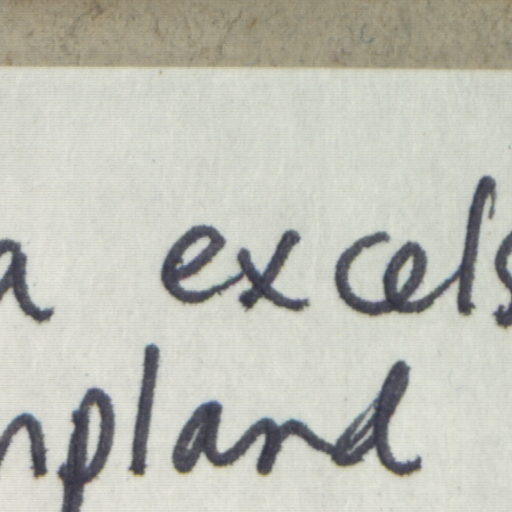 a excels
npland